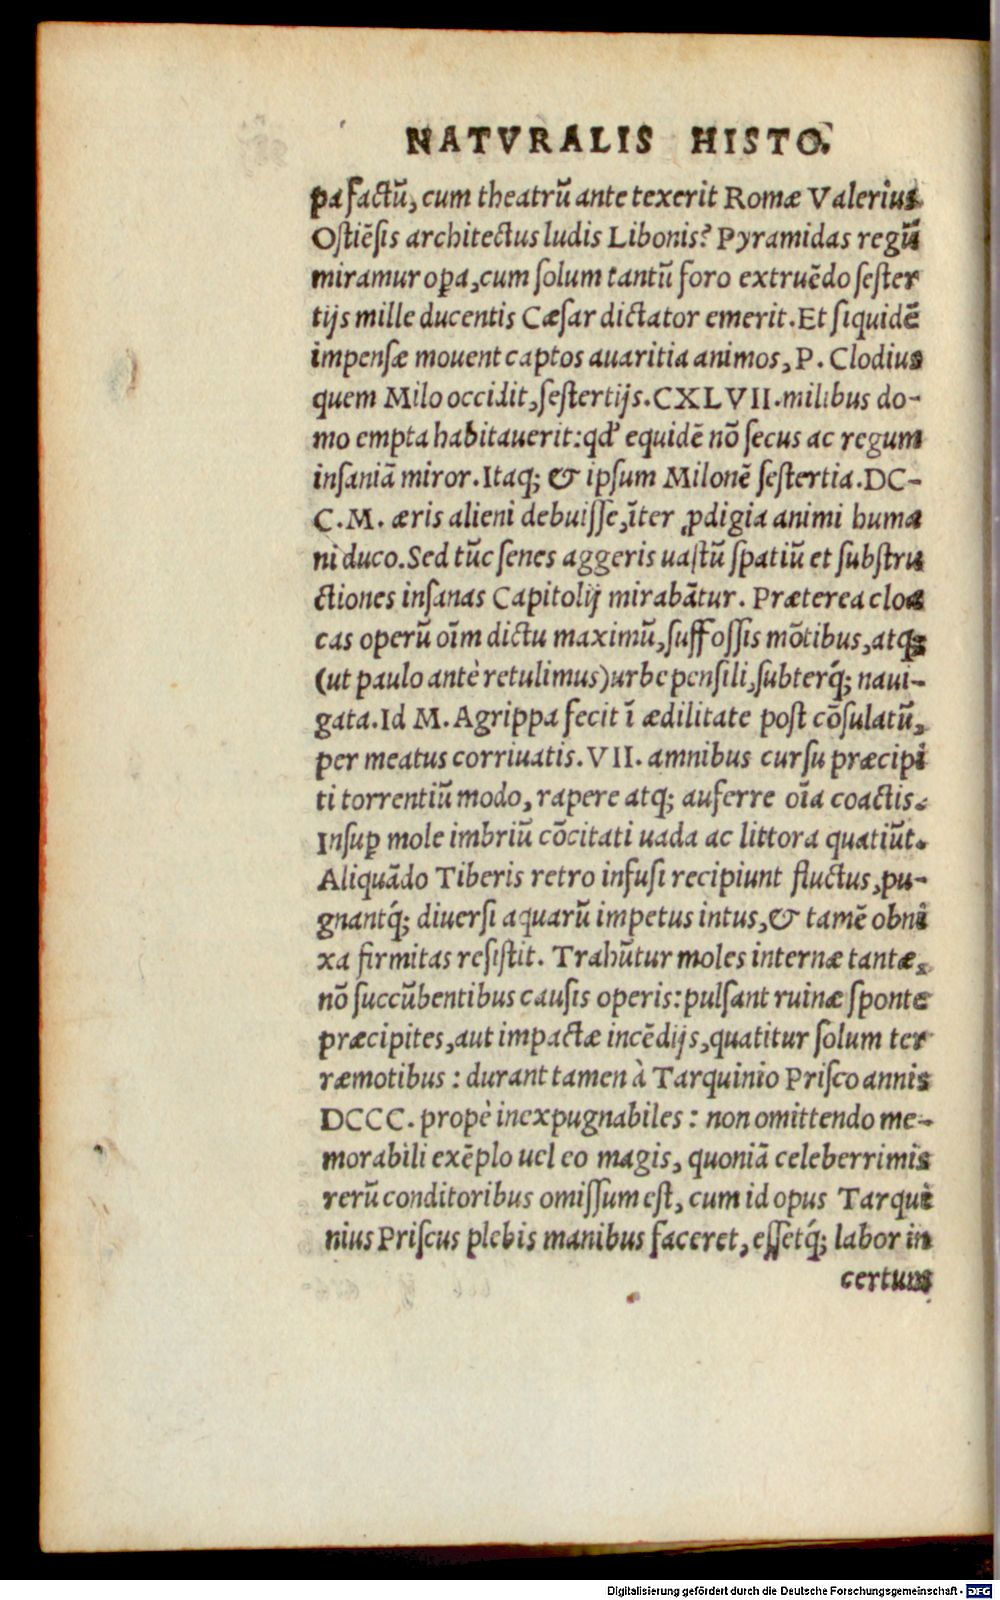 NATVRALIS HISTO.
pa factū, cum theatrū ante texerit Romæ Valerius
Ostiēsis architectus ludis Libonis? Pyramidas regū
miramur oꝑa, cum solum tantū foro extruēdo sester
tijs mille ducentis Cæsar dictator emerit. Et siquidē
impensæ mouent captos auaritia animos, P. Clodius
quem Milo occidit, sestertijs. CXLVII. milibus do-
mo empta habitauerit: qd' equidē nō secus ac regum
insaniā miror. Itaq; & ipsum Milonē sestertia. DC-
C. M. æris alieni debuisse, īter ꝓdigia animi huma
ni duco. Sed tūc senes aggeris uastū spatiū et substru
ctiones insanas Capitolij mirabātur. Præterea cloa
cas operū oīm dictu maximū, suffossis mōtibus, atq;
(ut paulo antè retulimus) urbe pensili, subterq́; naui-
gata. Id M. Agrippa fecit ī ædilitate post cōsulatū,
per meatus corriuatis. VII. amnibus cursu præcipi
ti torrentiū modo, rapere atq; auferre oīa coactis.
Insuꝑ mole imbriū cōcitati uada ac littora quatiūt.
Aliquādo Tiberis retro infusi recipiunt fluctus, pu-
gnantq́; diuersi aquarū impetus intus, & tamē obni
xa firmitas resistit. Trahūtur moles internæ tantæ,
nō succūbentibus causis operis: pulsant ruinæ sponte
præcipites, aut impactæ incēdijs, quatitur solum ter
ræmotibus: durant tamen à Tarquinio Prisco annis
DCCC. propè inexpugnabiles: non omittendo me-
morabili exēplo uel eo magis, quoniā celeberrimis
rerū conditoribus omissum est, cum id opus Tarqui
nius Priscus plebis manibus faceret, essetq́; labor in
certum
Digitalisierung gefördert durch die Deutsche Forschungsgemeinschaft - DFG